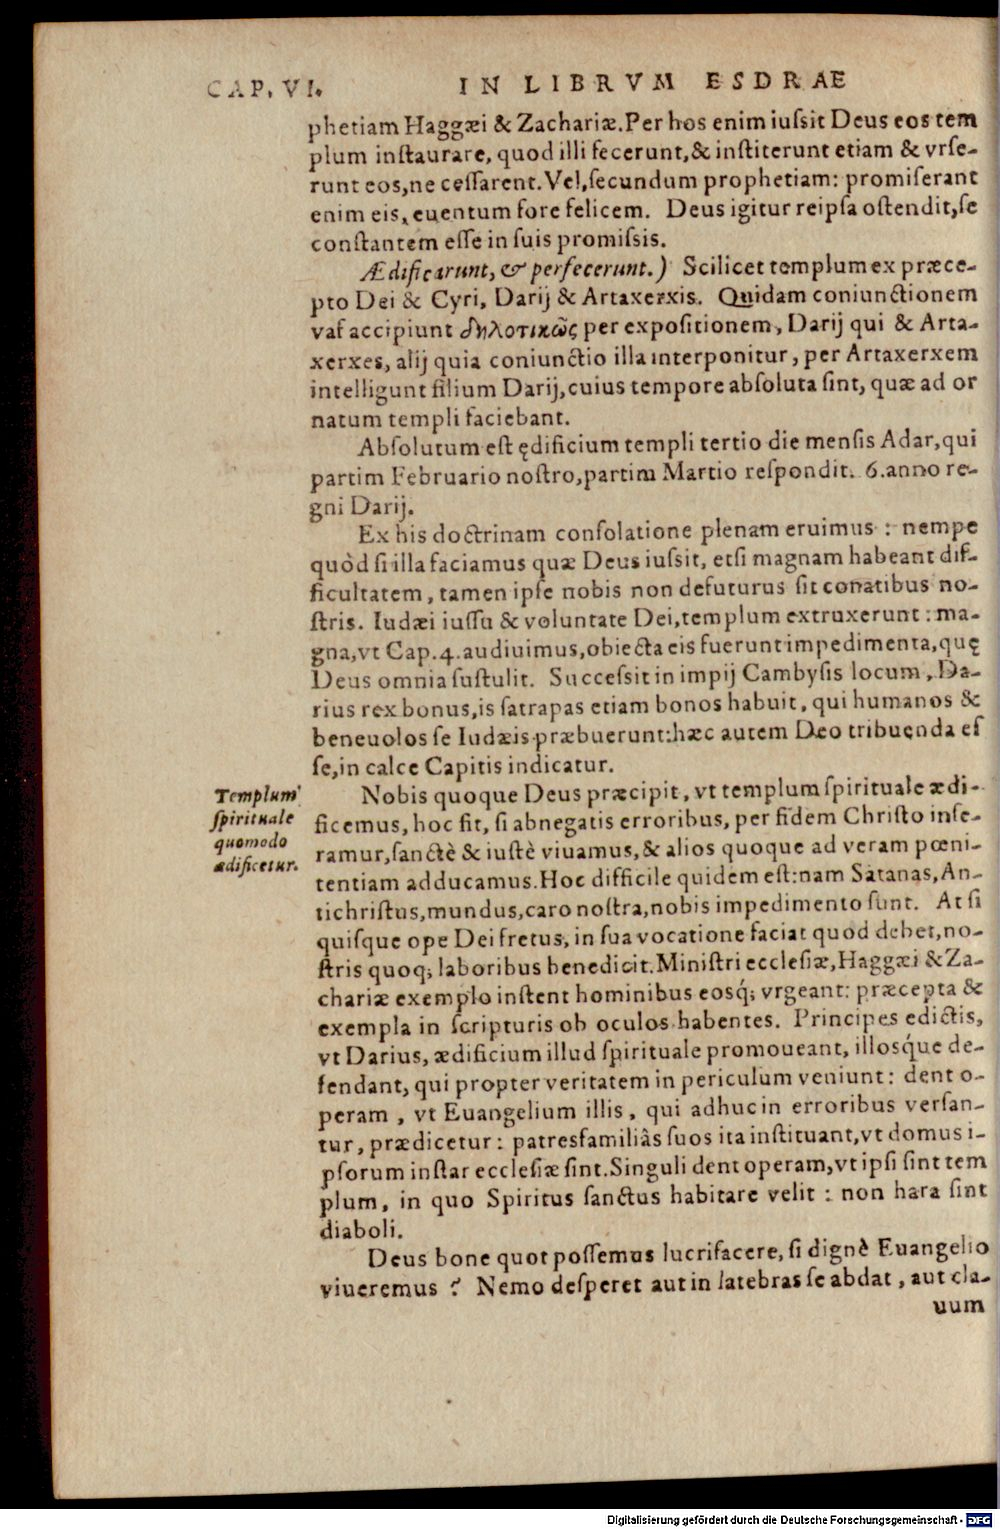 CAP. VI. IN LIBRVM ESDRAE
phetiam Haggæi & Zachariæ. Per hos enim iuſsit Deus eos tem
plum inſtaurare, quod illi fecerunt, & inſtiterunt etiam & vrſe-
runt eos, ne ceſſarent. Vel, ſecundum prophetiam: promiſerant
enim eis, euentum fore felicem. Deus igitur reipſa oſtendit, ſe
conſtantem eſſe in ſuis promiſsis.
Ædificarunt, & perfecerunt.) Scilicet templum ex præce-
pto Dei & Cyri, Darij & Artaxerxis. Quidam coniunctionem
vaf accipiunt δηλοτικῶς per expoſitionem, Darij qui & Arta-
xerxes, alij quia coniunctio illa interponitur, per Artaxerxem
intelligunt filium Darij, cuius tempore abſoluta ſint, quæ ad or
natum templi faciebant.
Abſolutum eſt ędificium templi tertio die menſis Adar, qui
partim Februario noſtro, partim Martio reſpondit. 6. anno re-
gni Darij.
Ex his doctrinam conſolatione plenam eruimus: nempe
quòd ſi illa faciamus quæ Deus iuſsit, etſi magnam habeant dif-
ficultatem, tamen ipſe nobis non defuturus ſit conatibus no-
ſtris. Iudæi iuſſu & voluntate Dei, templum extruxerunt: ma-
gna, vt Cap. 4. audiuimus, obiecta eis fuerunt impedimenta, quę
Deus omnia ſuſtulit. Succeſsit in impij Cambyſis locum, Da-
rius rex bonus, is ſatrapas etiam bonos habuit, qui humanos &
beneuolos ſe Iudæis præbuerunt: hæc autem Deo tribuenda eſ
ſe, in calce Capitis indicatur.
Templum
ſpirituale
quomodo
ædificetur.
Nobis quoque Deus præcipit, vt templum ſpirituale ædi-
ficemus, hoc fit, ſi abnegatis erroribus, per fidem Chriſto inſe-
ramur, ſanctè & iuſtè viuamus, & alios quoque ad veram pœni-
tentiam adducamus. Hoc difficile quidem eſt: nam Satanas, An-
tichriſtus, mundus, caro noſtra, nobis impedimento ſunt. At ſi
quiſque ope Dei fretus, in ſua vocatione faciat quod debet, no-
ſtris quoq; laboribus benedicit. Miniſtri eccleſiæ, Haggæi & Za-
chariæ exemplo inſtent hominibus eosq́; vrgeant: præcepta &
exempla in ſcripturis ob oculos habentes. Principes edictis,
vt Darius, ædificium illud ſpirituale promoueant, illosq́ue de-
fendant, qui propter veritatem in periculum veniunt: dent o-
peram, vt Euangelium illis, qui adhuc in erroribus verſan-
tur, prædicetur: patresfamiliâs ſuos ita inſtituant, vt domus i-
pſorum inſtar eccleſiæ ſint. Singuli dent operam, vt ipſi ſint tem
plum, in quo Spiritus ſanctus habitare velit: non hara ſint
diaboli.
Deus bone quot poſſemus lucrifacere, ſi dignè Euangelio
viueremus? Nemo deſperet aut in latebras ſe abdat, aut cla-
uum
Digitalisierung gefördert durch die Deutsche Forschungsgemeinschaft - DFG